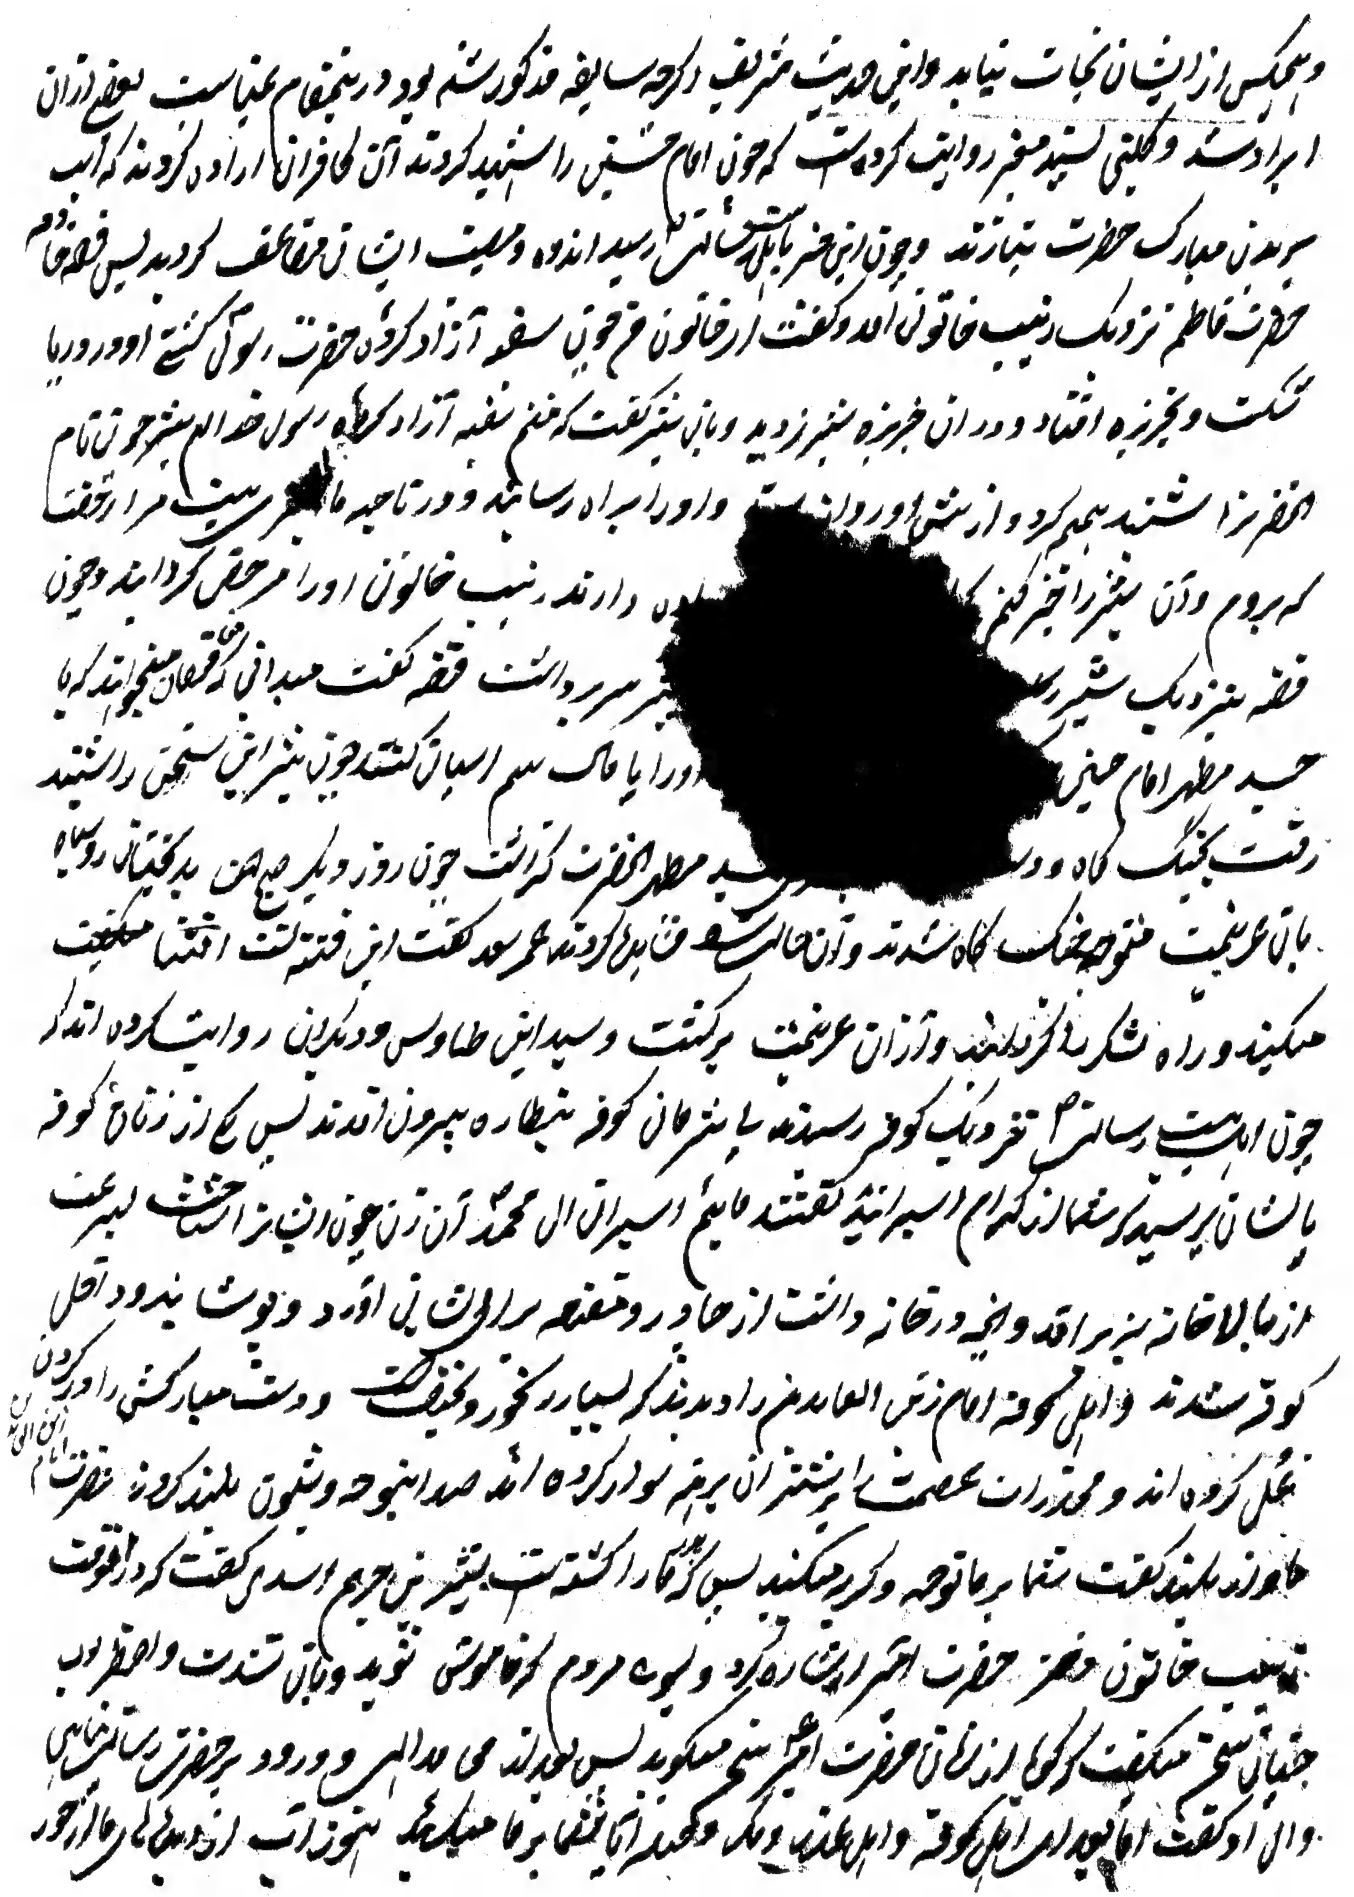 و هیچکس از ایشان نجات نیابد و این حدیث شریف اگرچه سابقه مذکور شده بود در ینمقام بمناسبت بعضی ازان
ایراد شد و کلینی بسند معتبر روایت کرده است که چون امام حسین را شهید کردند آن کافران اراده کردند که اسب
بر بدن مبارک حضرت بتازند و چون این خبر باهل بیت رسالت رسید اندوه و مصیبت ایشان مضاعف کردید پس فضه خادمه
حضرت فاطمه نزدیک زینب خاتون آمد و کفت ای خاتون من چون سفینه آزاد کرده حضرت رسول کشتی او در دریا
شکست و بجزیره افتاد و در ان جزیره شیر دید و بان شیر کفت که منم سفینه آزاد کرده رسول خدا ان شیر چون نام
انحضرترا شنید همهمه کرد و از پیش او روان و او را براه رسانید و در ناحیه ما شیری هست مرا رخصت
که بروم و آن شیر را خبر کنم اراده دارند زینب خاتون او را مرخص کردانید و چون
فضه بنزدیک شیر رسید سر برداشت فضه کفت میدانی که میخواهند که با
جسد مطهر امام حسین او را پامال سم اسپان کنند چون شیر این سخن را شنید
رفت بجنک کاه و جسد مطهر انحضرت کذاشت چون روز دیکر صبح ان بدبختان روسیاه
بان عزیمت متوجه جنک کاه شدند و آن حالت مشاهده کردند عمر سعد کفت این فتنه است افشا
میکنید و راه لشکر و ازان عزیمت برکشت و سید ابن طاوس و دیکران روایت کرده اند که
چون اهلبیت رسالت نزدیک کوفه رسیدند بی شرمان کوفه بنظاره بیرون آمدند پس یکی از زنان کوفه
بایشان پرسید که شما از کدام اسیرانید کفتند مائیم اسیران ال محمد آن زن چون ایشانرا شناخت بسرعت
از بالا خانه بزیر آمد و انچه در خانه داشت از چادر و مقنعه برای ایشان آورد و پوشانید و داخل
کوفه شدند و اهل کوفه امام زین العابدین را دیدند که بسیار رنجور و نحیف است و دست مبارکش را در کردن
غل کرده اند و مخدرات عصمت را بر شتران برهنه سوار کرده اند صدا بنوحه و شیون بلند کردند حضرت امام زین العابدین
باواز بلند کفت شما بر ما نوحه و کریه میکنید پس که ما را کشته است بشیر بن جریم اسدی کفت که در انوقت
زینب خاتون دختر حضرت امیر اشاره کرد و بسوی مردم که خاموش شوید و بان شدت و اضطراب
چنان سخن میکفت که کویا از زبان حضرت امیر سخن میکوید پس بعد از محامد الهی و درود بر حضرت رسالت پناهی
و ال او کفت اما بعد ای اهل کوفه و اهل غدر و مکر و حیله آیا شما بر ما میکریید هنوز آب از دیده‌های ما از جور